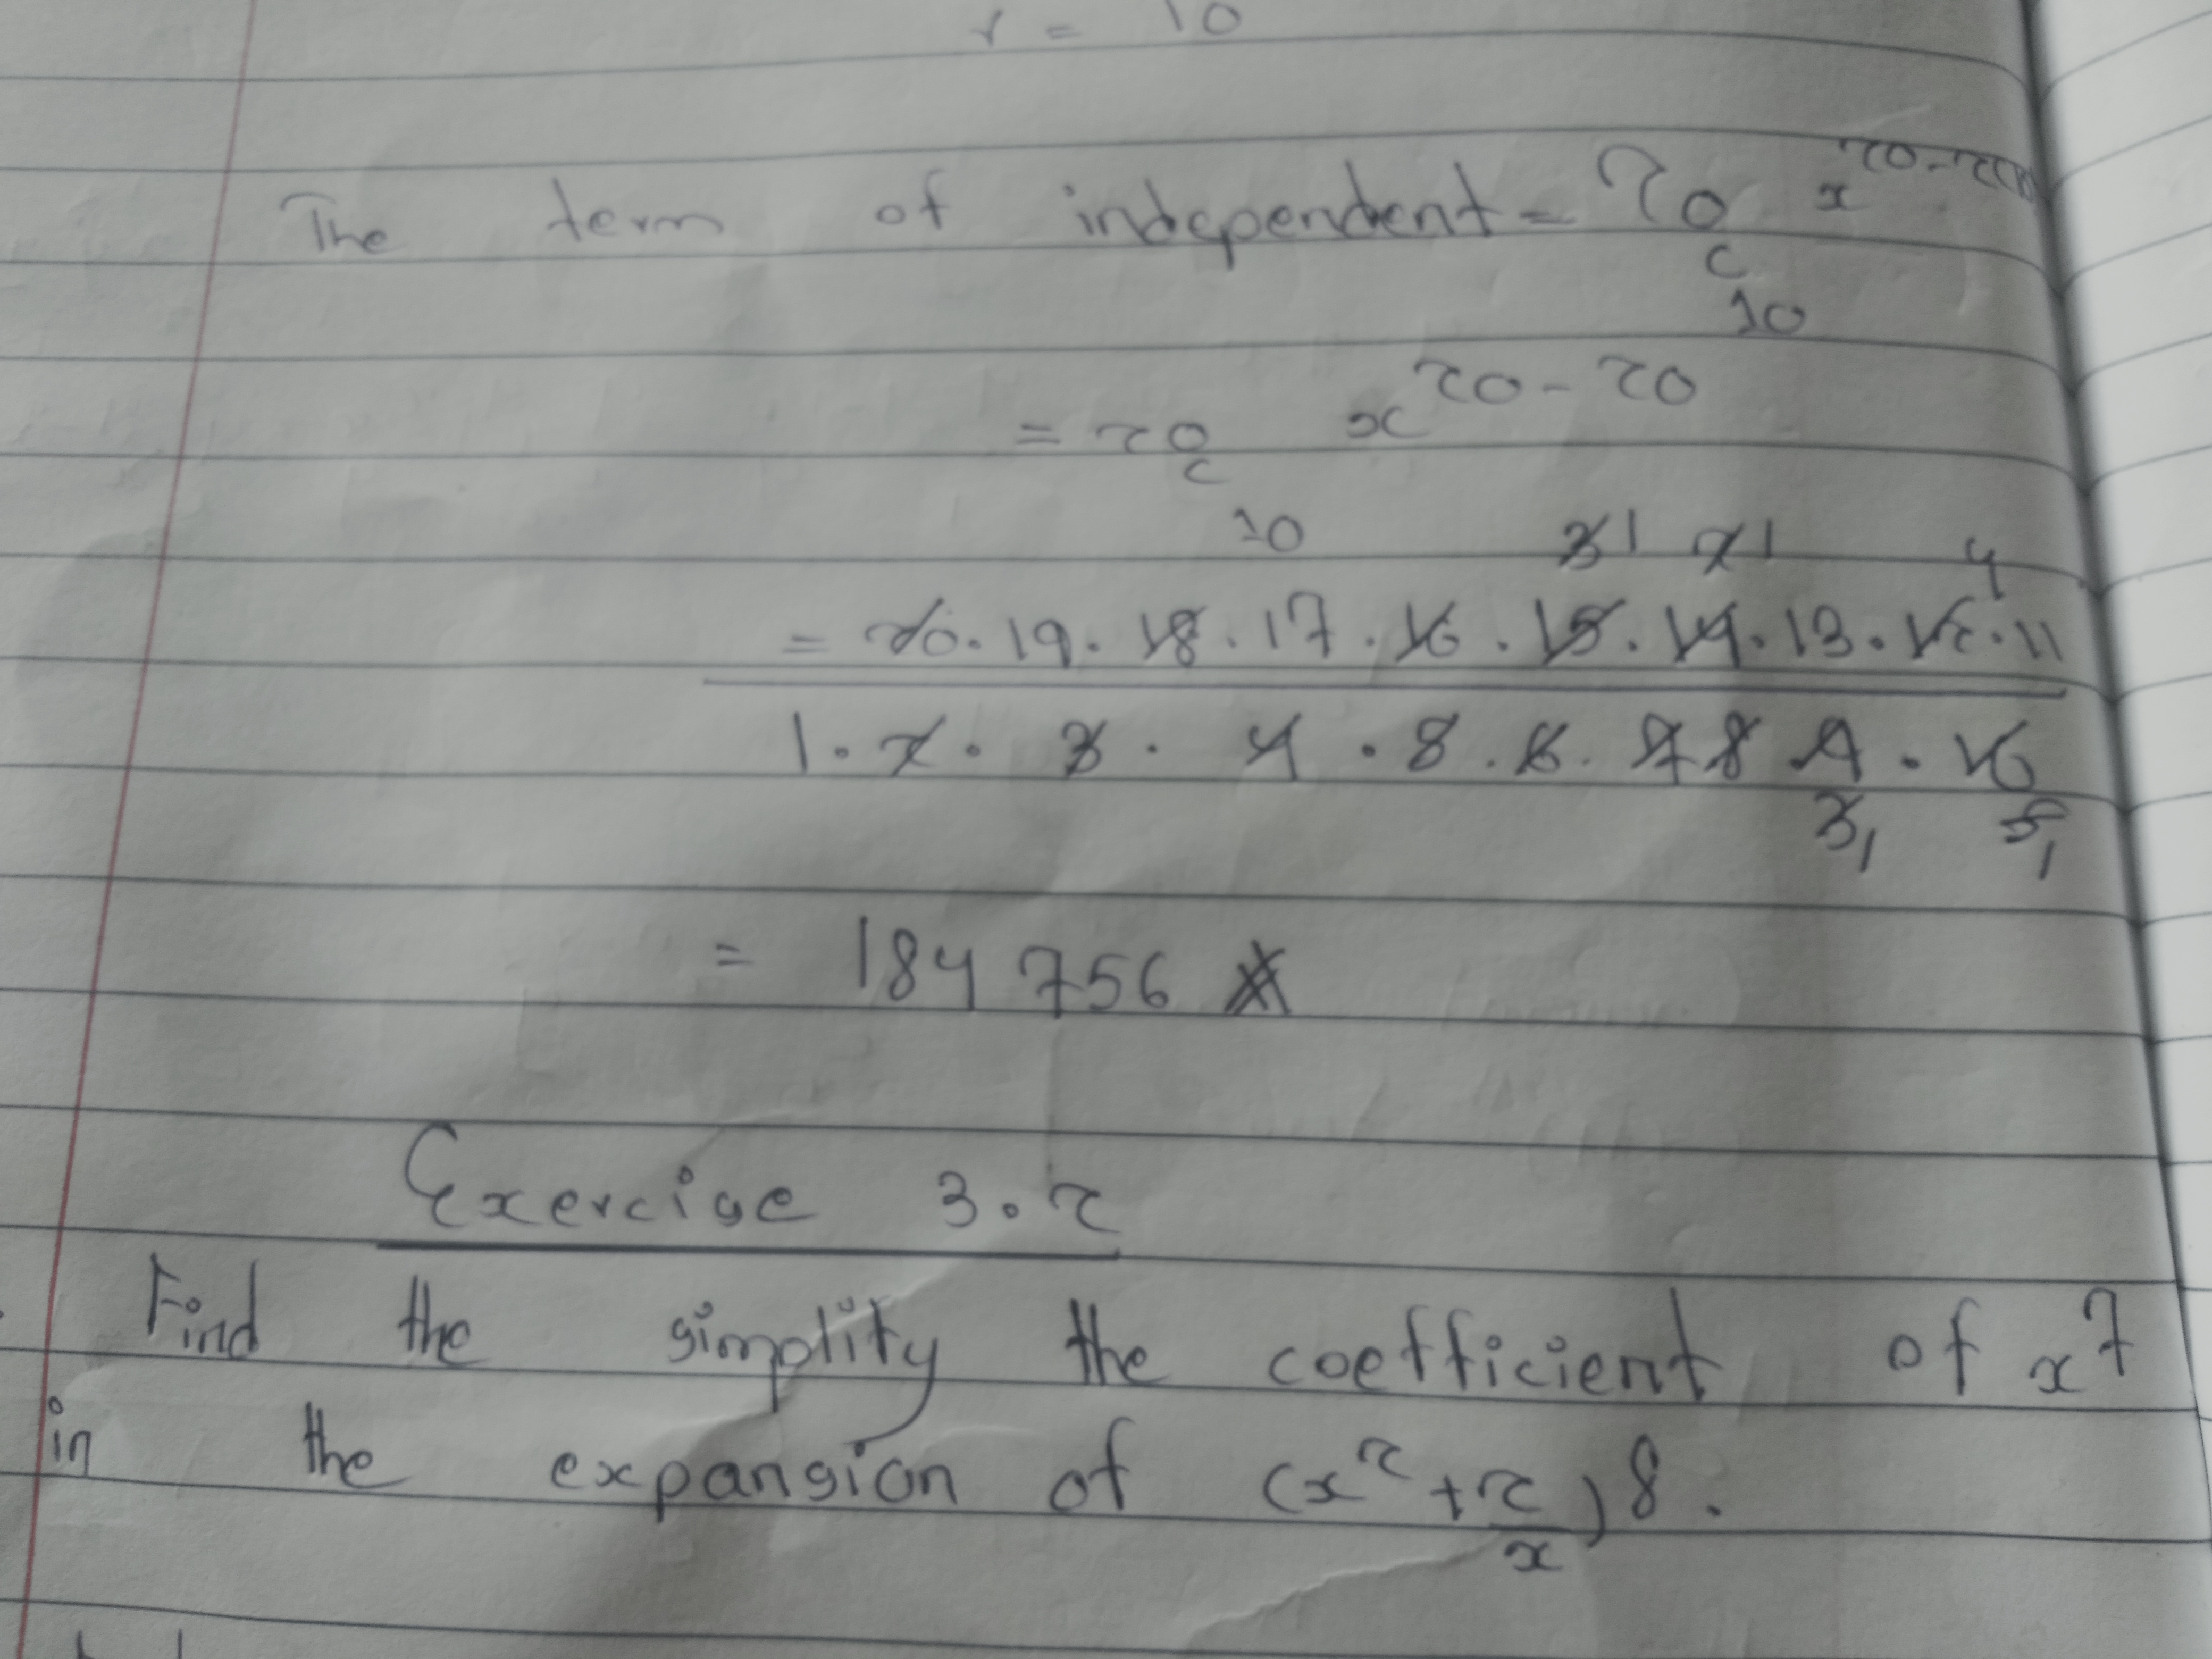 r = 10
The term of independent = 20 c 10 x^20-2(10)
= 20 c 10 x^20-20
31 21 4
= 20.19.18.17.16.15.14.13.12.11
1.2.3.4.5.6.7 8 9.10
3 1 5 1
= 184 756
Exercise 3.2
Find the simplity the coefficient of x^7
in the expansion of (x^2 + 2/x) 8.